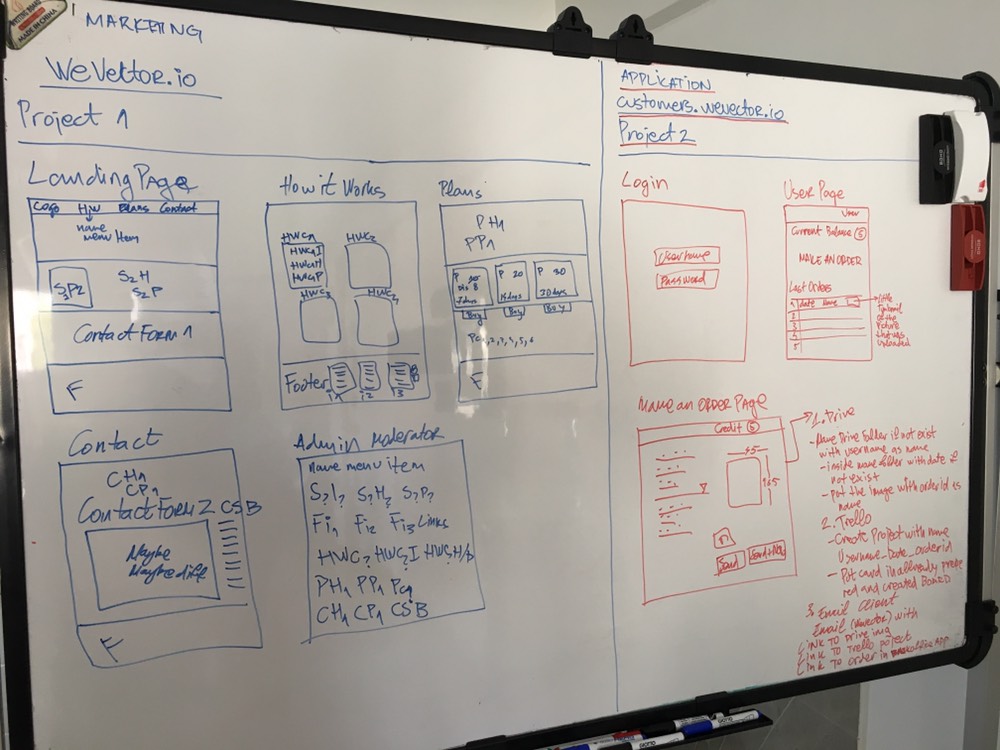 MADE IN CHINA
MARKETING
WeVektor.io
Project 1
Landing Page
Logo HIW Plans Contact
name
menu Item
S2H
S2P
Contact Form 1
F
How it Works
HWC1
HWC1I
HWC1H
HWC1P
HWC2
HWC3
Footer
i1 i2 i3
Plans
PH1
PP1
P
7 days
P 20
15 days
P 30
30 days
Buy Buy Buy
F
Contact
CH1
CP1
Contact Form 2 CSB
Maybe
Maybe diff
F
Admin Moderator
Name menu item
S?I? S?H? S?P?
Fi1 Fi2 Fi3 Links
PH1 PP1
CH1 CP1 CSB
APPLICATION
customers.wevector.io
Project 2
Login
Username
Password
User Page
User
Current Balance 5
MAKE AN ORDER
Last Orders
1 date Name
2
3
4
5
little
of the
picture
that was
uploaded
Make an ORDER PAGE
Credit 5
1. Drive
- Name Drive folder if not exist
with username as name
- inside name folder with date if
not exist
- put the image with order id as
name
2. Trello
- Create Project with name
Username_Date_orderid
- Put card in allready prepe
red and created BOARD
3. Email Client
Email (wevector) with
Link To Drive img
Link To Trello poject
Link To order in backoffice App